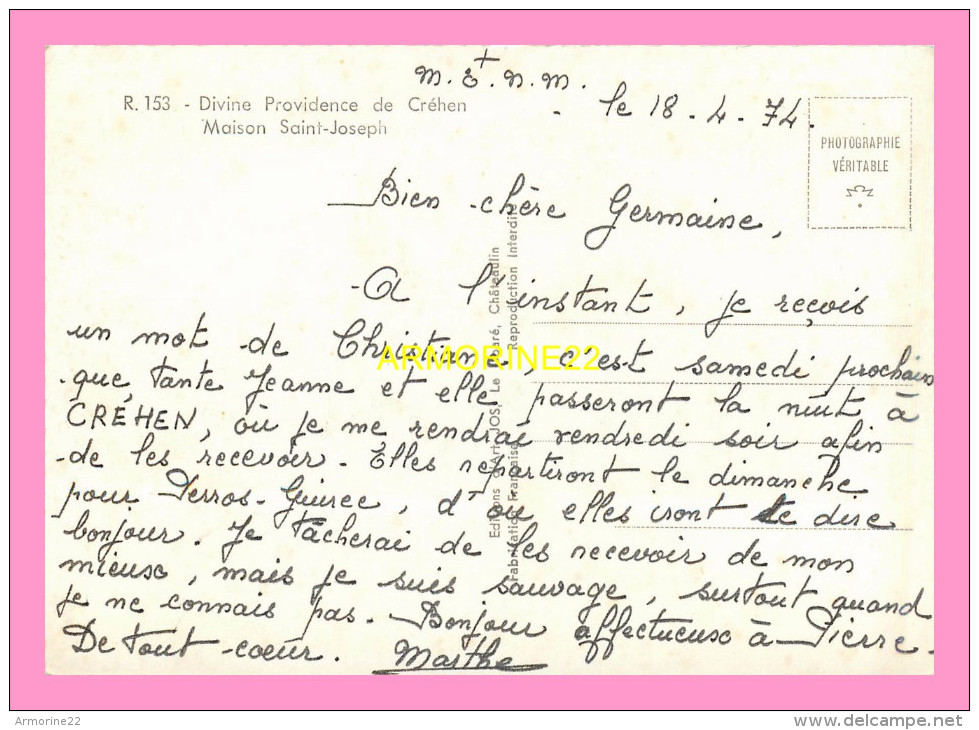 M.E+.N.M.
R. 153 - Divine Providence de Créhen
Maison Saint-Joseph
le 18.4.74.
PHOTOGRAPHIE
VÉRITABLE
Bien chère Germaine,
A l'instant, je reçois
un mot de Christiane, c'est samedi prochain
que, tante Jeanne et elle passeront la nuit à
CRÉHEN, où je me rendrai vendredi soir afin
de les recevoir. Elles repartiront le dimanche
pour Perros-Guirec, d'où elles iront te dire
bonjour. Je tâcherai de les recevoir de mon
mieux, mais je suis sauvage, surtout quand
je ne connais pas. Bonjour affectueux à Pierre.
De tout coeur. Marthe
Editions d'Art JOS Le Doaré, Châteaulin
Fabrication Française Reproduction Interdite
ARMORINE22
Armorine22
www.delcampe.net